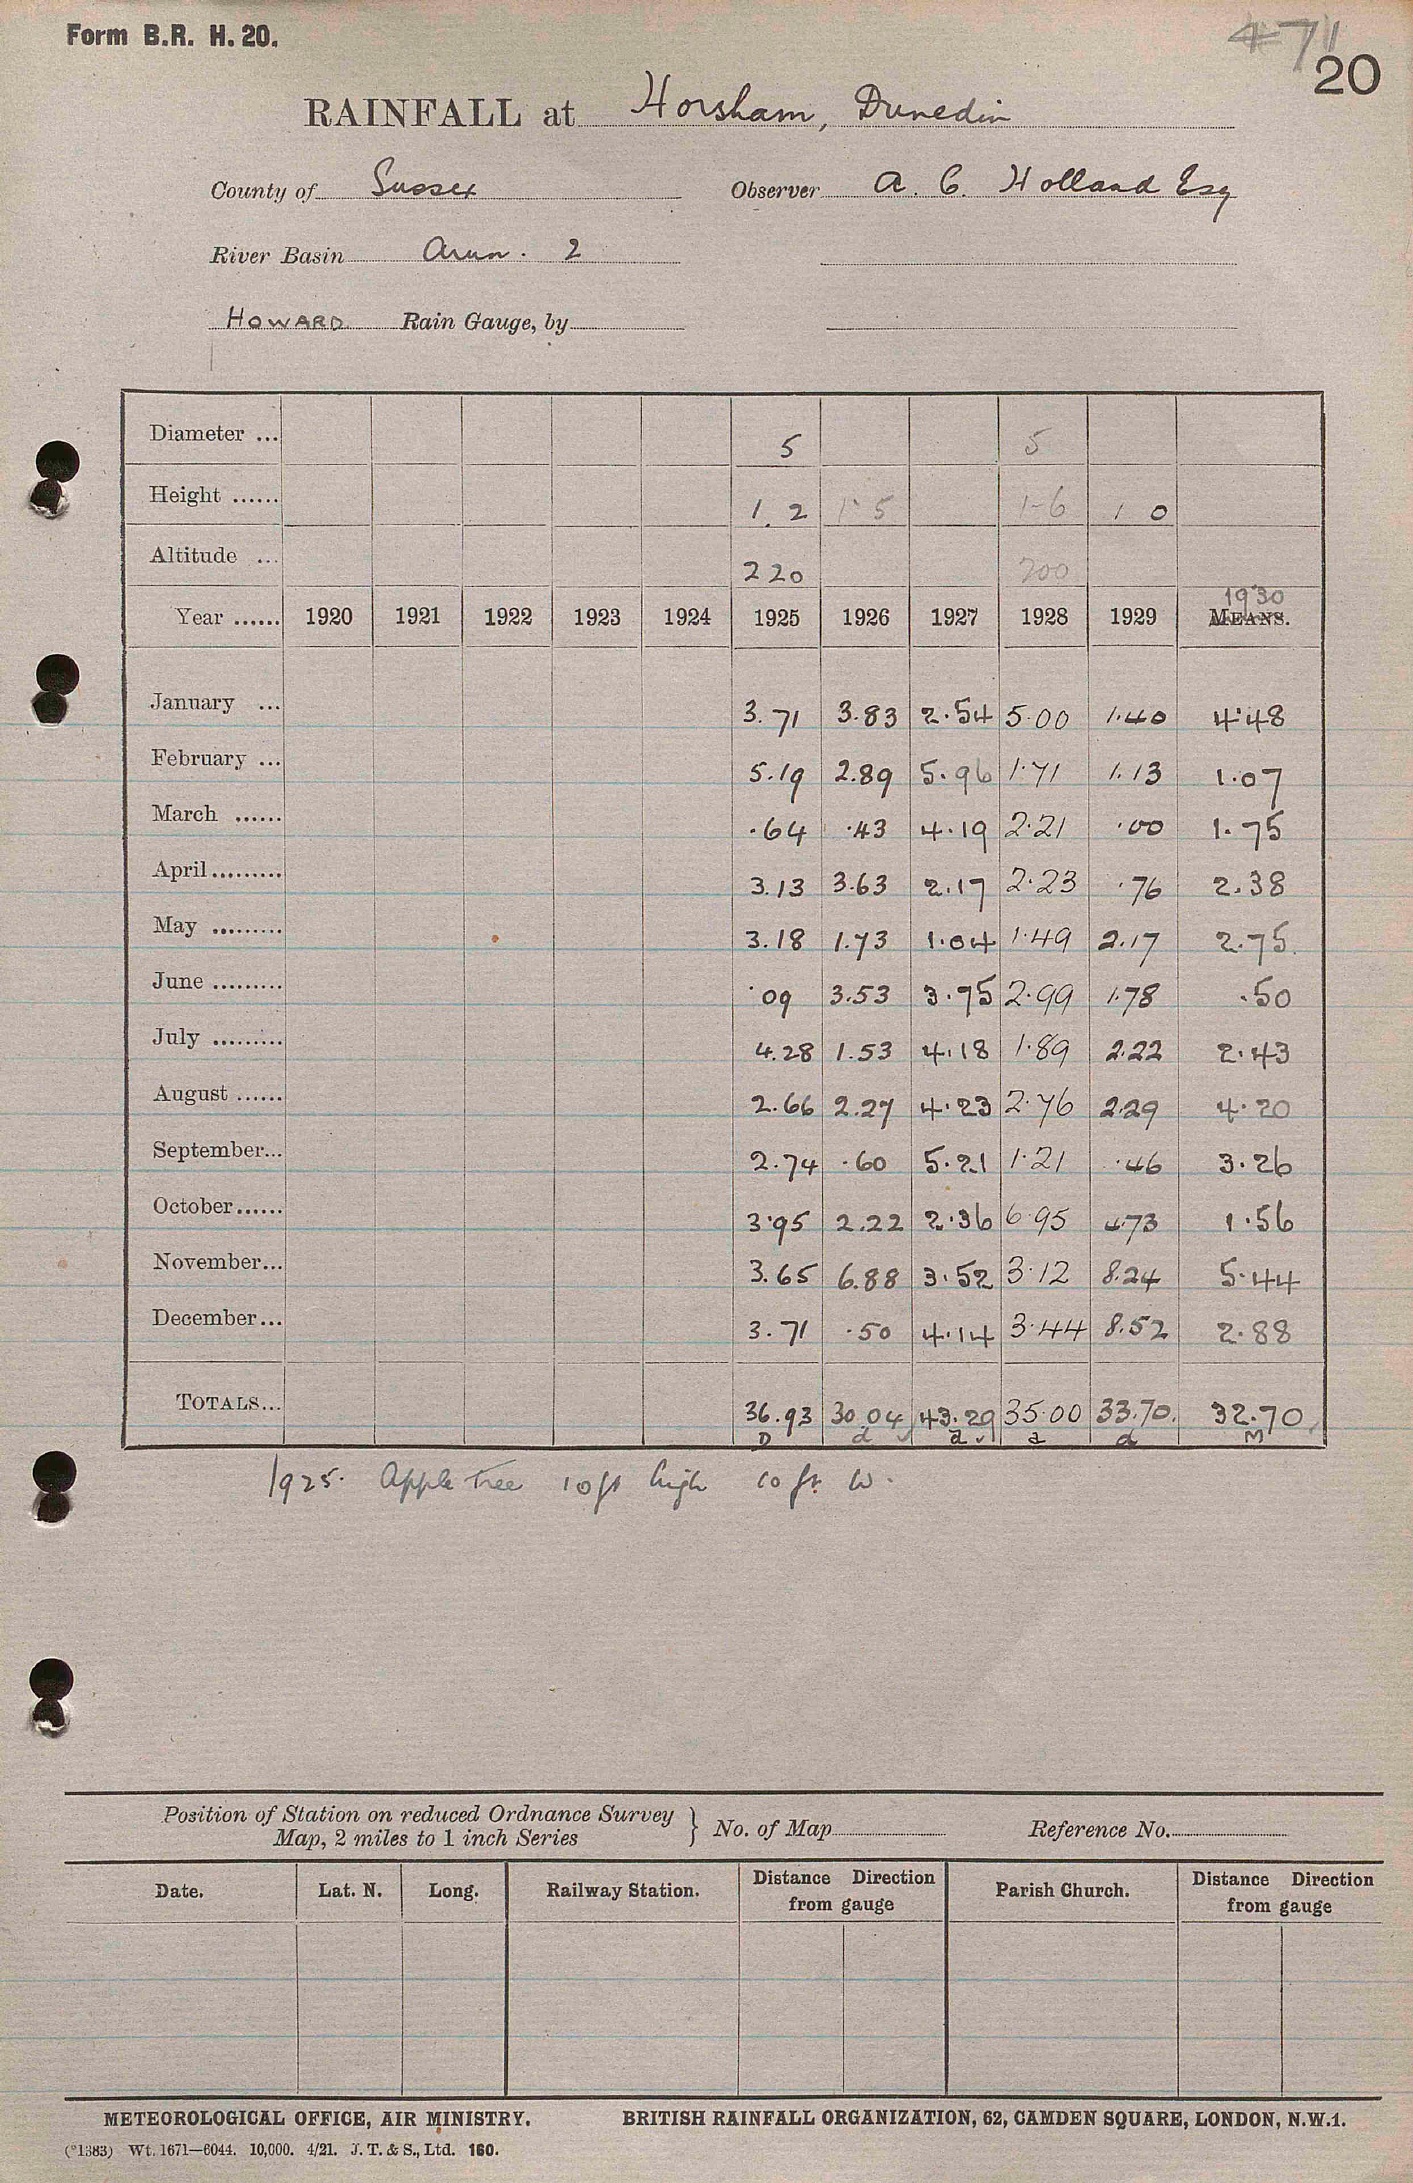 Form B.R. H. 20.
471
20
RAINFALL at Horsham, Dunedin
County of Sussex Observer A. C. Holland Esq
River Basin Arun. 2
HOWARD Rain Gauge, by
Diameter ... 5 5
Height ...... 1. 2 1·5 1-6 1 0
Altitude ... 220 200
1930
Year ...... 1920 1921 1922 1923 1924 1925 1926 1927 1928 1929 MEANS.
January ... 3.71 3.83 2.54 5.00 1.40 4.48
February ... 5.19 2.89 5.96 1.71 1.13 1.07
March ...... .64 .43 4.19 2.21 .00 1.75
April ......... 3.13 3.63 2.17 2.23 .76 2.38
May ......... 3.18 1.73 1.04 1.49 2.17 2.75
June ......... .09 3.53 3.75 2.99 1.78 .50
July ......... 4.28 1.53 4.18 1.89 2.22 2.43
August ...... 2.66 2.27 4.23 2.76 2.29 4.20
September... 2.74 .60 5.21 1.21 .46 3.26
October...... 3.95 2.22 2.36 6.95 4.73 1.56
November... 3.65 6.88 3.52 3.12 8.24 5.44
December... 3.71 .50 4.14 3.44 8.52 2.88
TOTALS... 36.93 30.04 43.29 35.00 33.70. 32.70
D d a a d M
1925. Apple Tree 10ft high 10 ft W.
Position of Station on reduced Ordnance Survey
Map, 2 miles to 1 inch Series } No. of Map Reference No.
Date. Lat. N. Long. Railway Station. Distance Direction from gauge Parish Church. Distance Direction from gauge
METEOROLOGICAL OFFICE, AIR MINISTRY. BRITISH RAINFALL ORGANIZATION, 62, CAMDEN SQUARE, LONDON, N.W.1.
(*1383) Wt. 1671—6044. 10,000. 4/21. J. T. & S., Ltd. 160.